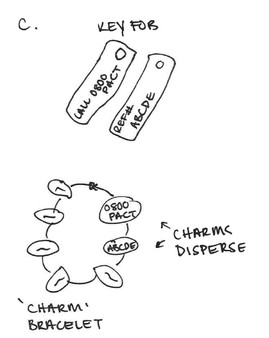 C.
KEY FOB
CALL 0800
PACT
REF#
ABCDE
0800
PACT
ABCDE
CHARMS
DISPERSE
'CHARM'
BRACELET